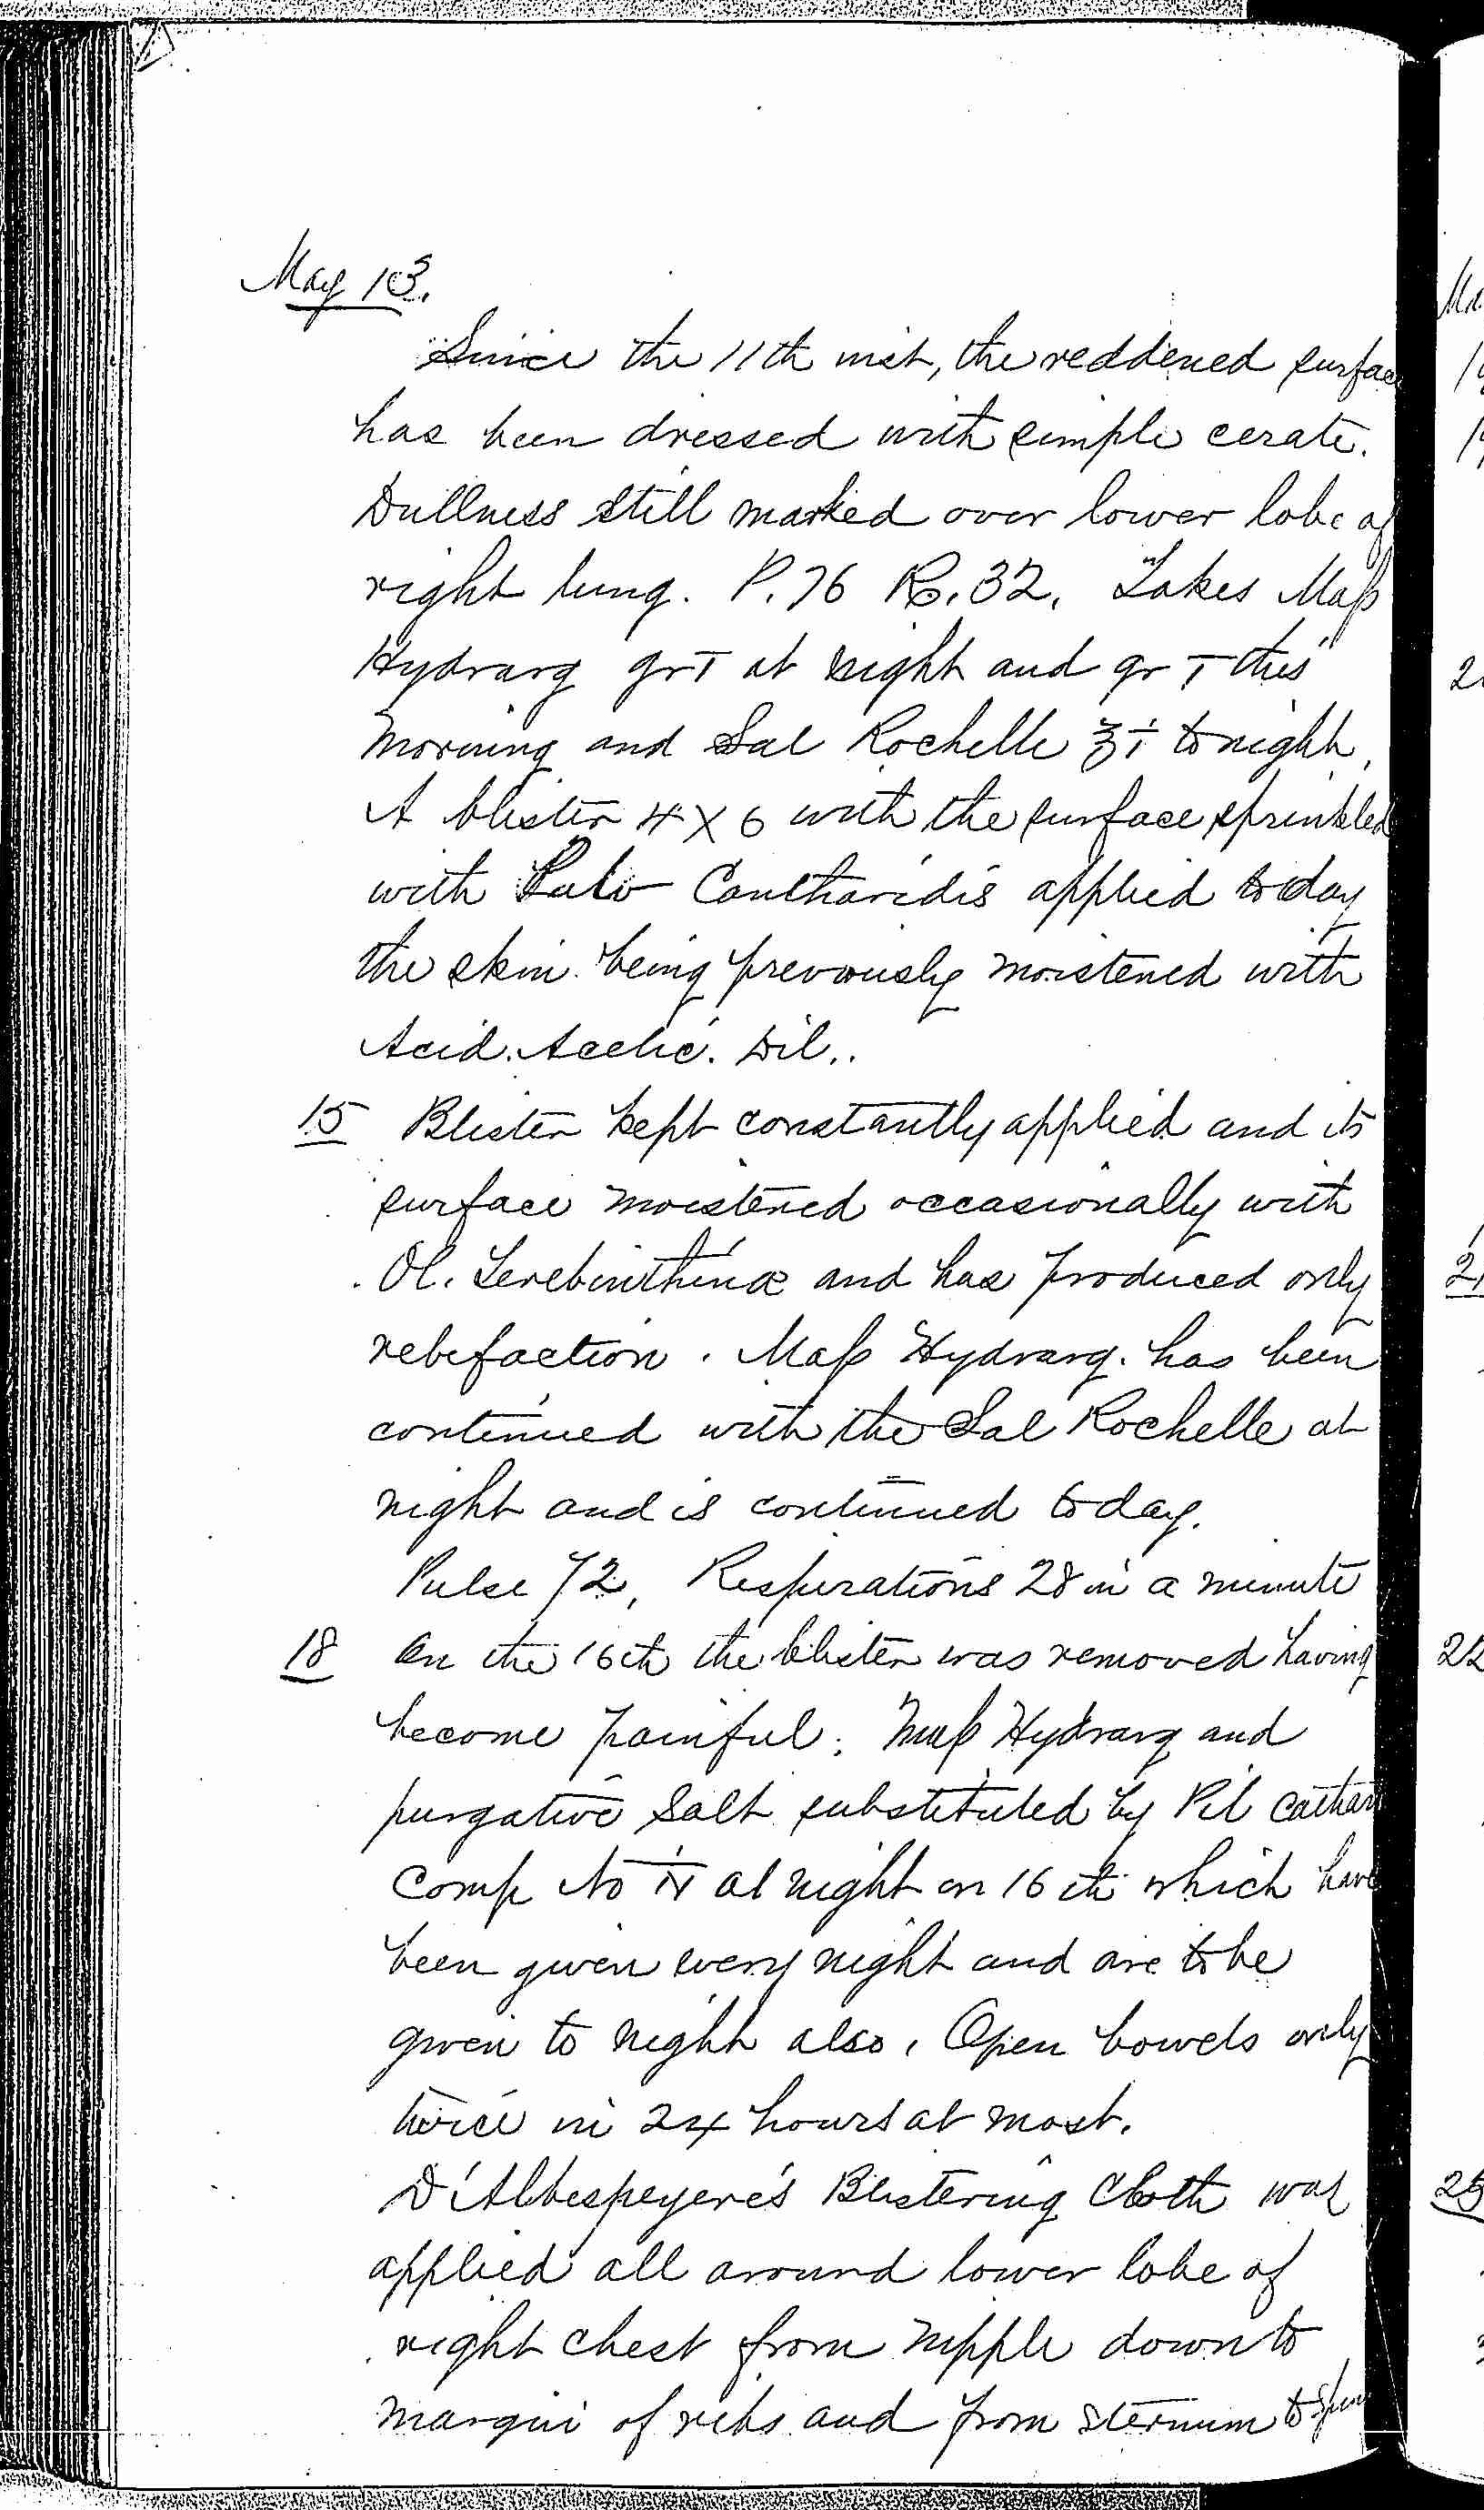 May 13.
Since the 11th inst, the reddened surface
has been dressed with simple cerate.
Dullness still marked over lower lobe of
right lung. P. 76 R. 32. Takes Mass
Hydrarg gr ī at night and gr ī this
morning and Sal Rochelle ʒī tonight,
A blister 4 X 6 with the surface sprinkled
with Pulv Cantharidis applied today
the skin being previously moistened with
Acid. Acetic. Dil..
15 Blister kept constantly applied and its
surface moistened occasionally with
Ol. Terebinthinæ and has produced only
rebefaction. Mass Hydrarg. has been
continued with the Sal Rochelle at
night and is continued today.
Pulse 72, Respirations 28 in a minute
18 On the 16th the blister was removed having
become painful. Mass Hydrarg and
purgative Salt substituted by Pil Cathar
Comp No at night on 16th which have
been given every night and are to be
given to night also, Open bowels only
twice in 24 hours at most.
D'Albespeyere's Blistering Cloth was
applied all around lower lobe of
right chest from nipple down to
margin of ribs and from sternum to spine